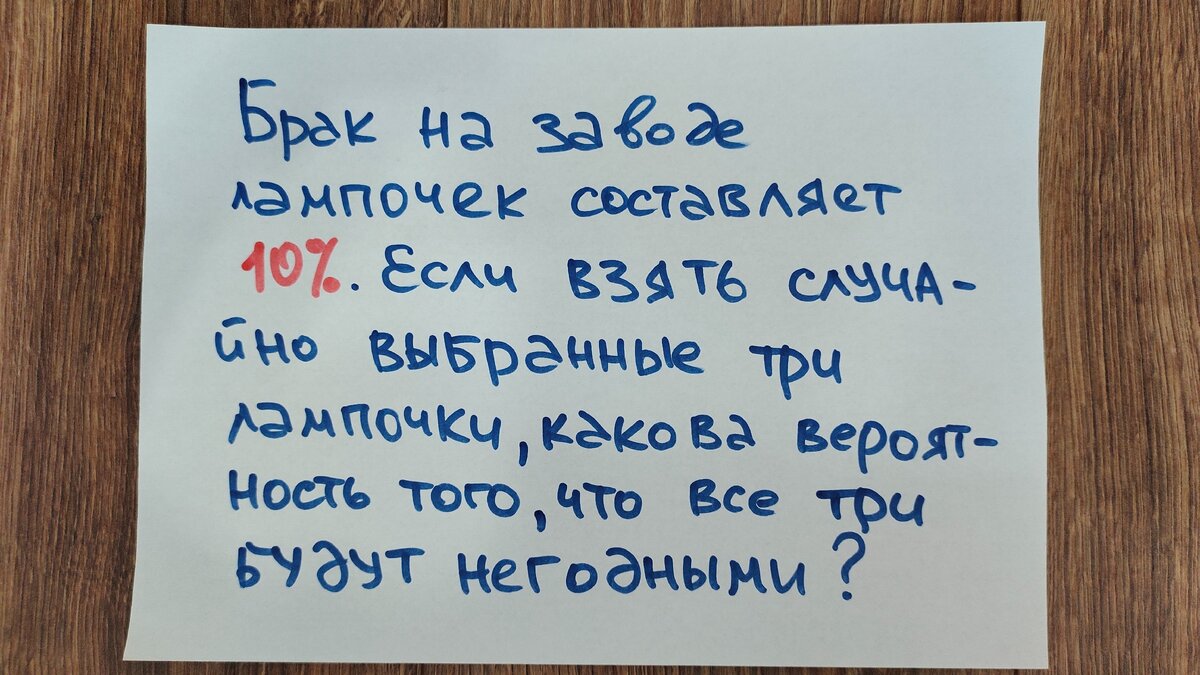 Брак на заводе
лампочек составляет
10%. Если взять случа-
йно выбранные три
лампочки, какова вероят-
ность того, что все три
будут негодными?